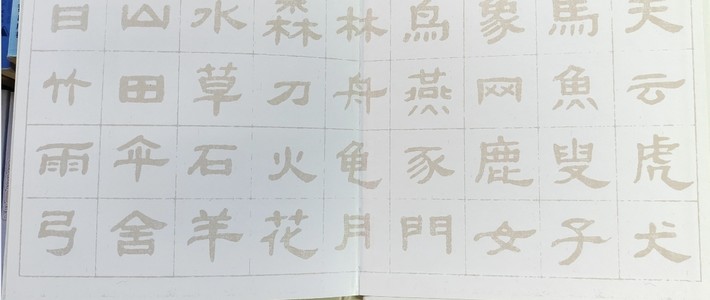 日山水森林鳥象馬夫
竹田草刀舟燕网魚云
雨伞石火龟豕鹿叟虎
弓舍羊花月門女子犬